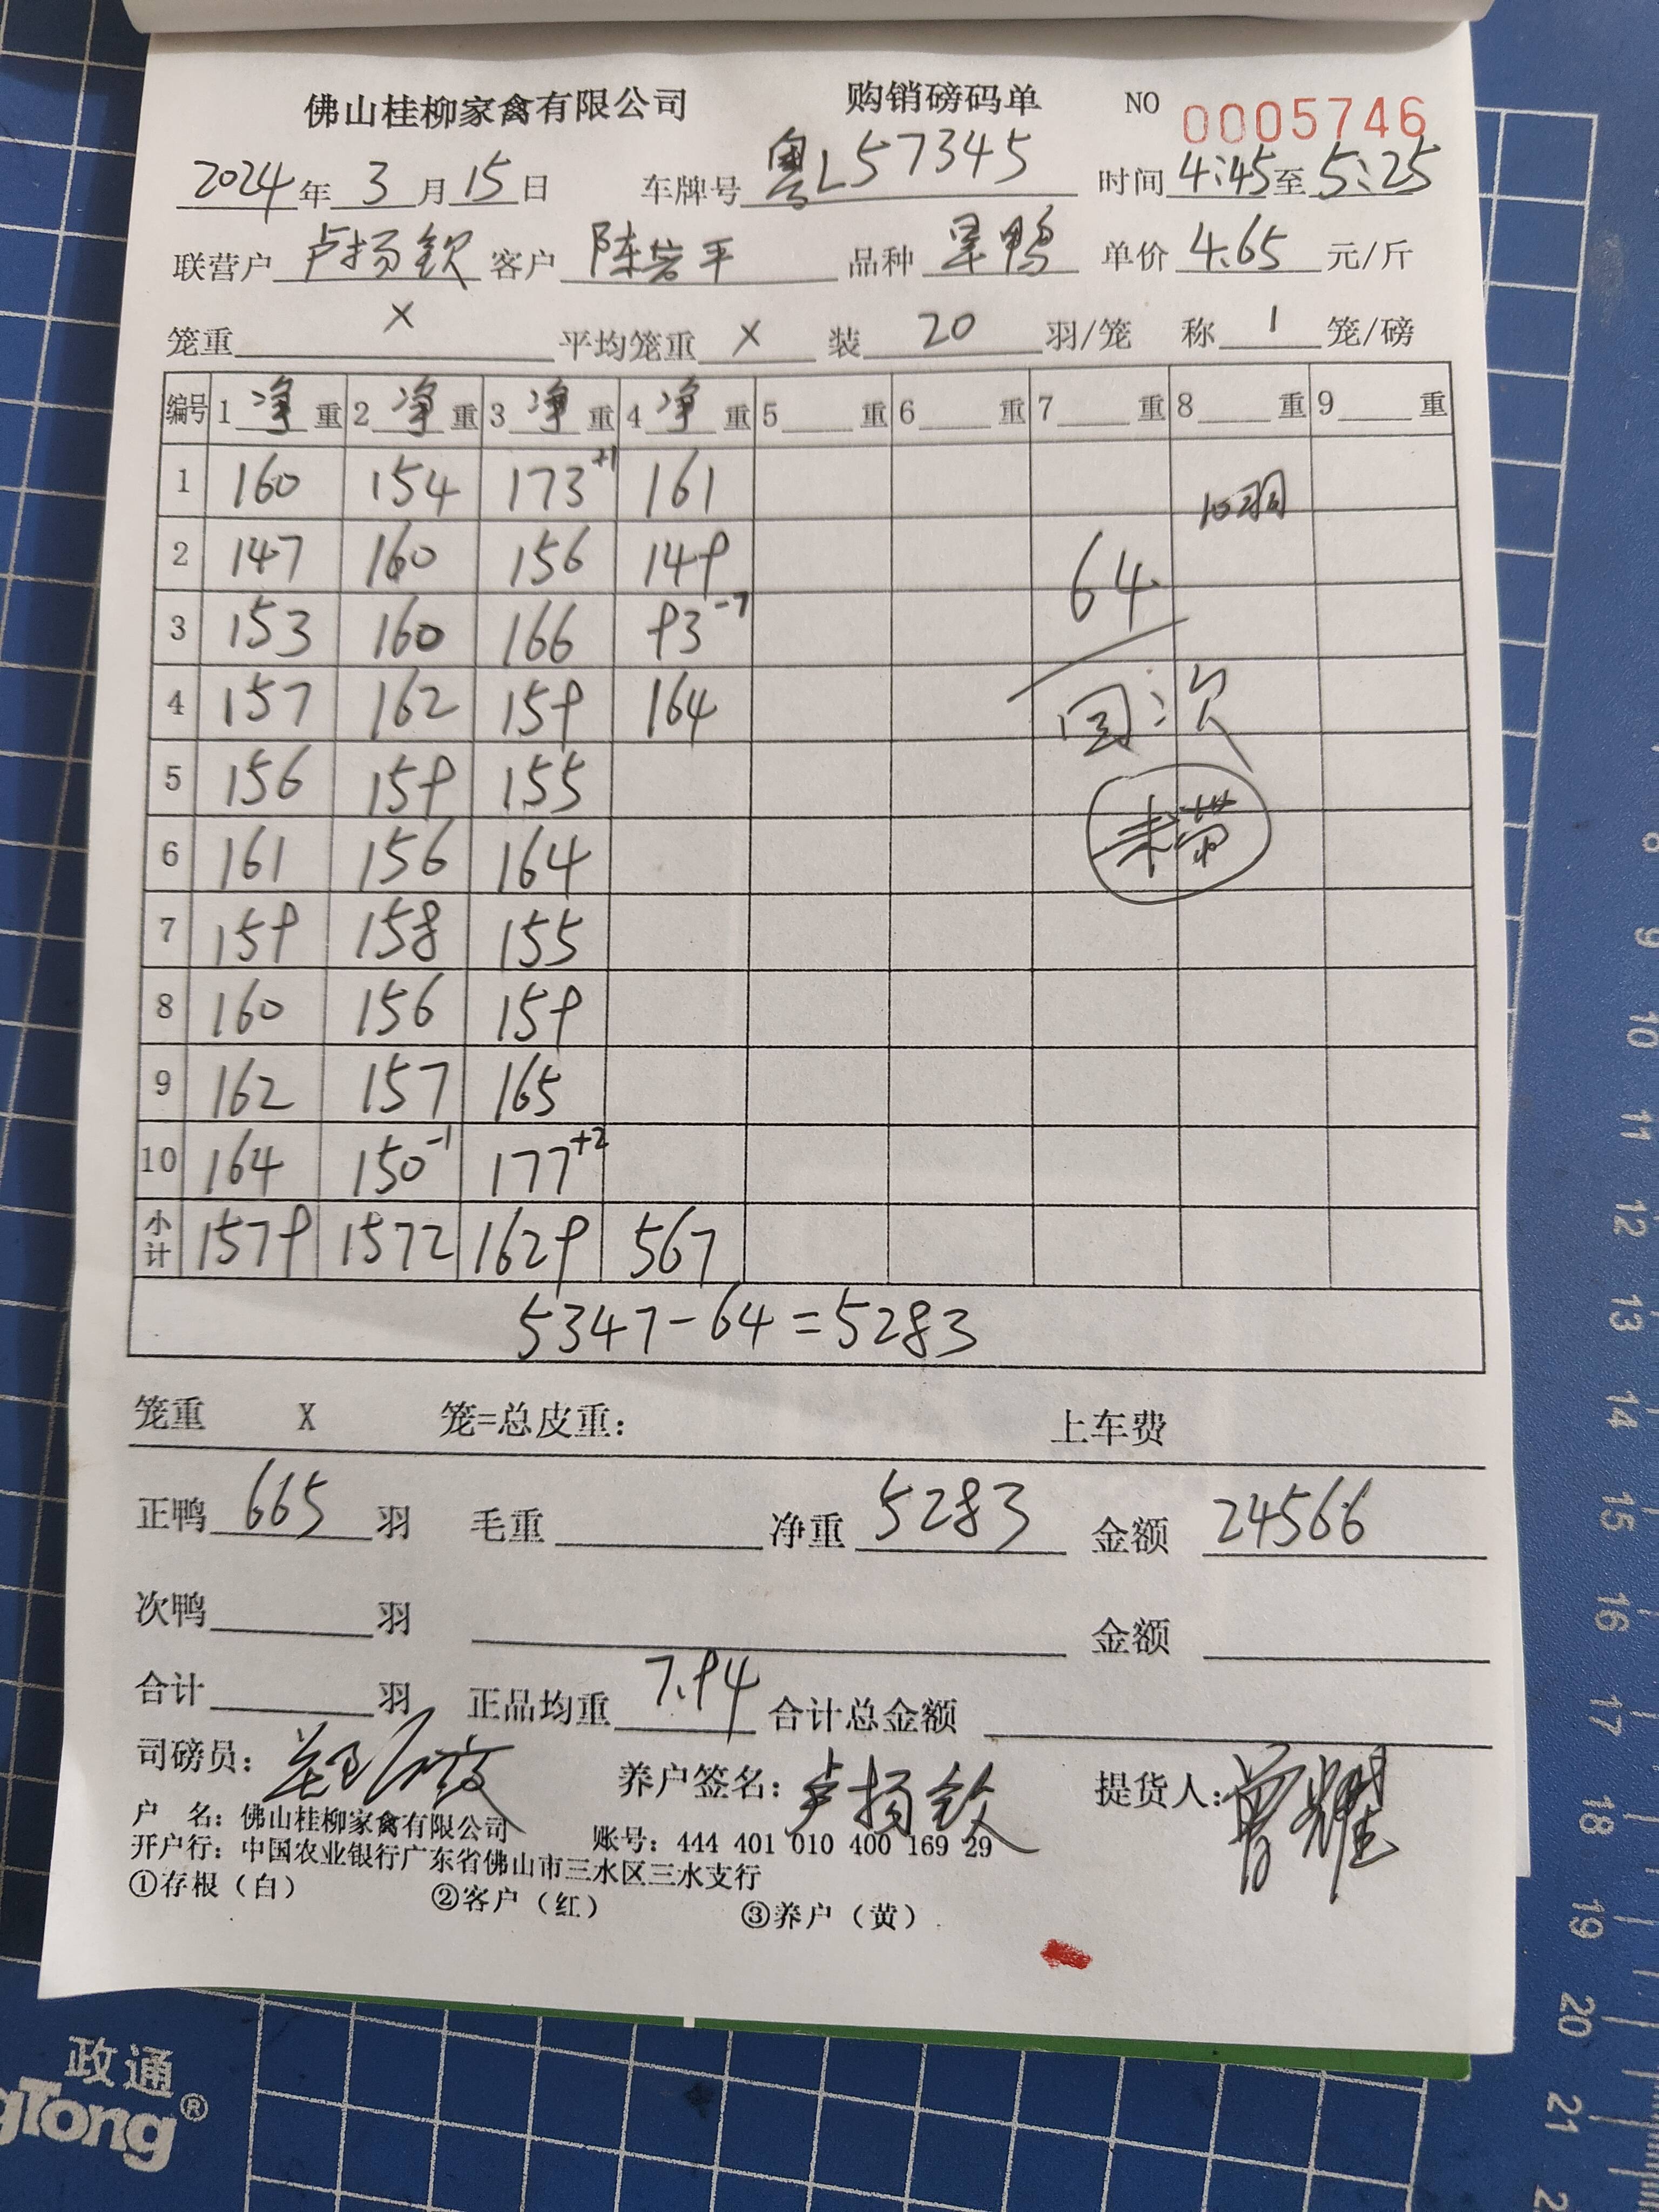 佛山桂柳家禽有限公司 购销磅码单 NO 0005746
2024年 3 月 15 日 车牌号 粤L57345 时间 4:45 至 5:25
联营户 卢扬钦 客户 陈岩平 品种 旱鸭 单价 4.65 元/斤
笼重 X 平均笼重 X 装 20 羽/笼 称 1 笼/磅
编号 1 净 重 2 净 重 3 净 重 4 净 重 5 重 6 重 7 重 8 重 9 重
1 160 154 173+1 161 10羽
2 147 160 156 149 64
3 153 160 166 93-7
4 157 162 159 164 回次
5 156 159 155
6 161 156 164 未带
7 159 158 155
8 160 156 159
9 162 157 165
10 164 150-1 177+2
小计 1579 1572 1629 567
5347-64=5283
笼重 X 笼=总皮重： 上车费
正鸭 665 羽 毛重 净重 5283 金额 24566
次鸭 羽 金额
合计 羽 正品均重 7.94 合计总金额
司磅员： 养户签名：卢扬钦 提货人：曾耀
户 名：佛山桂柳家禽有限公司 账号：444 401 010 400 169 29
开户行：中国农业银行广东省佛山市三水区三水支行
①存根（白） ②客户（红） ③养户（黄）
政通®
gTong
7
8
9
10
11
12
13
14
15
16
17
18
19
20
21